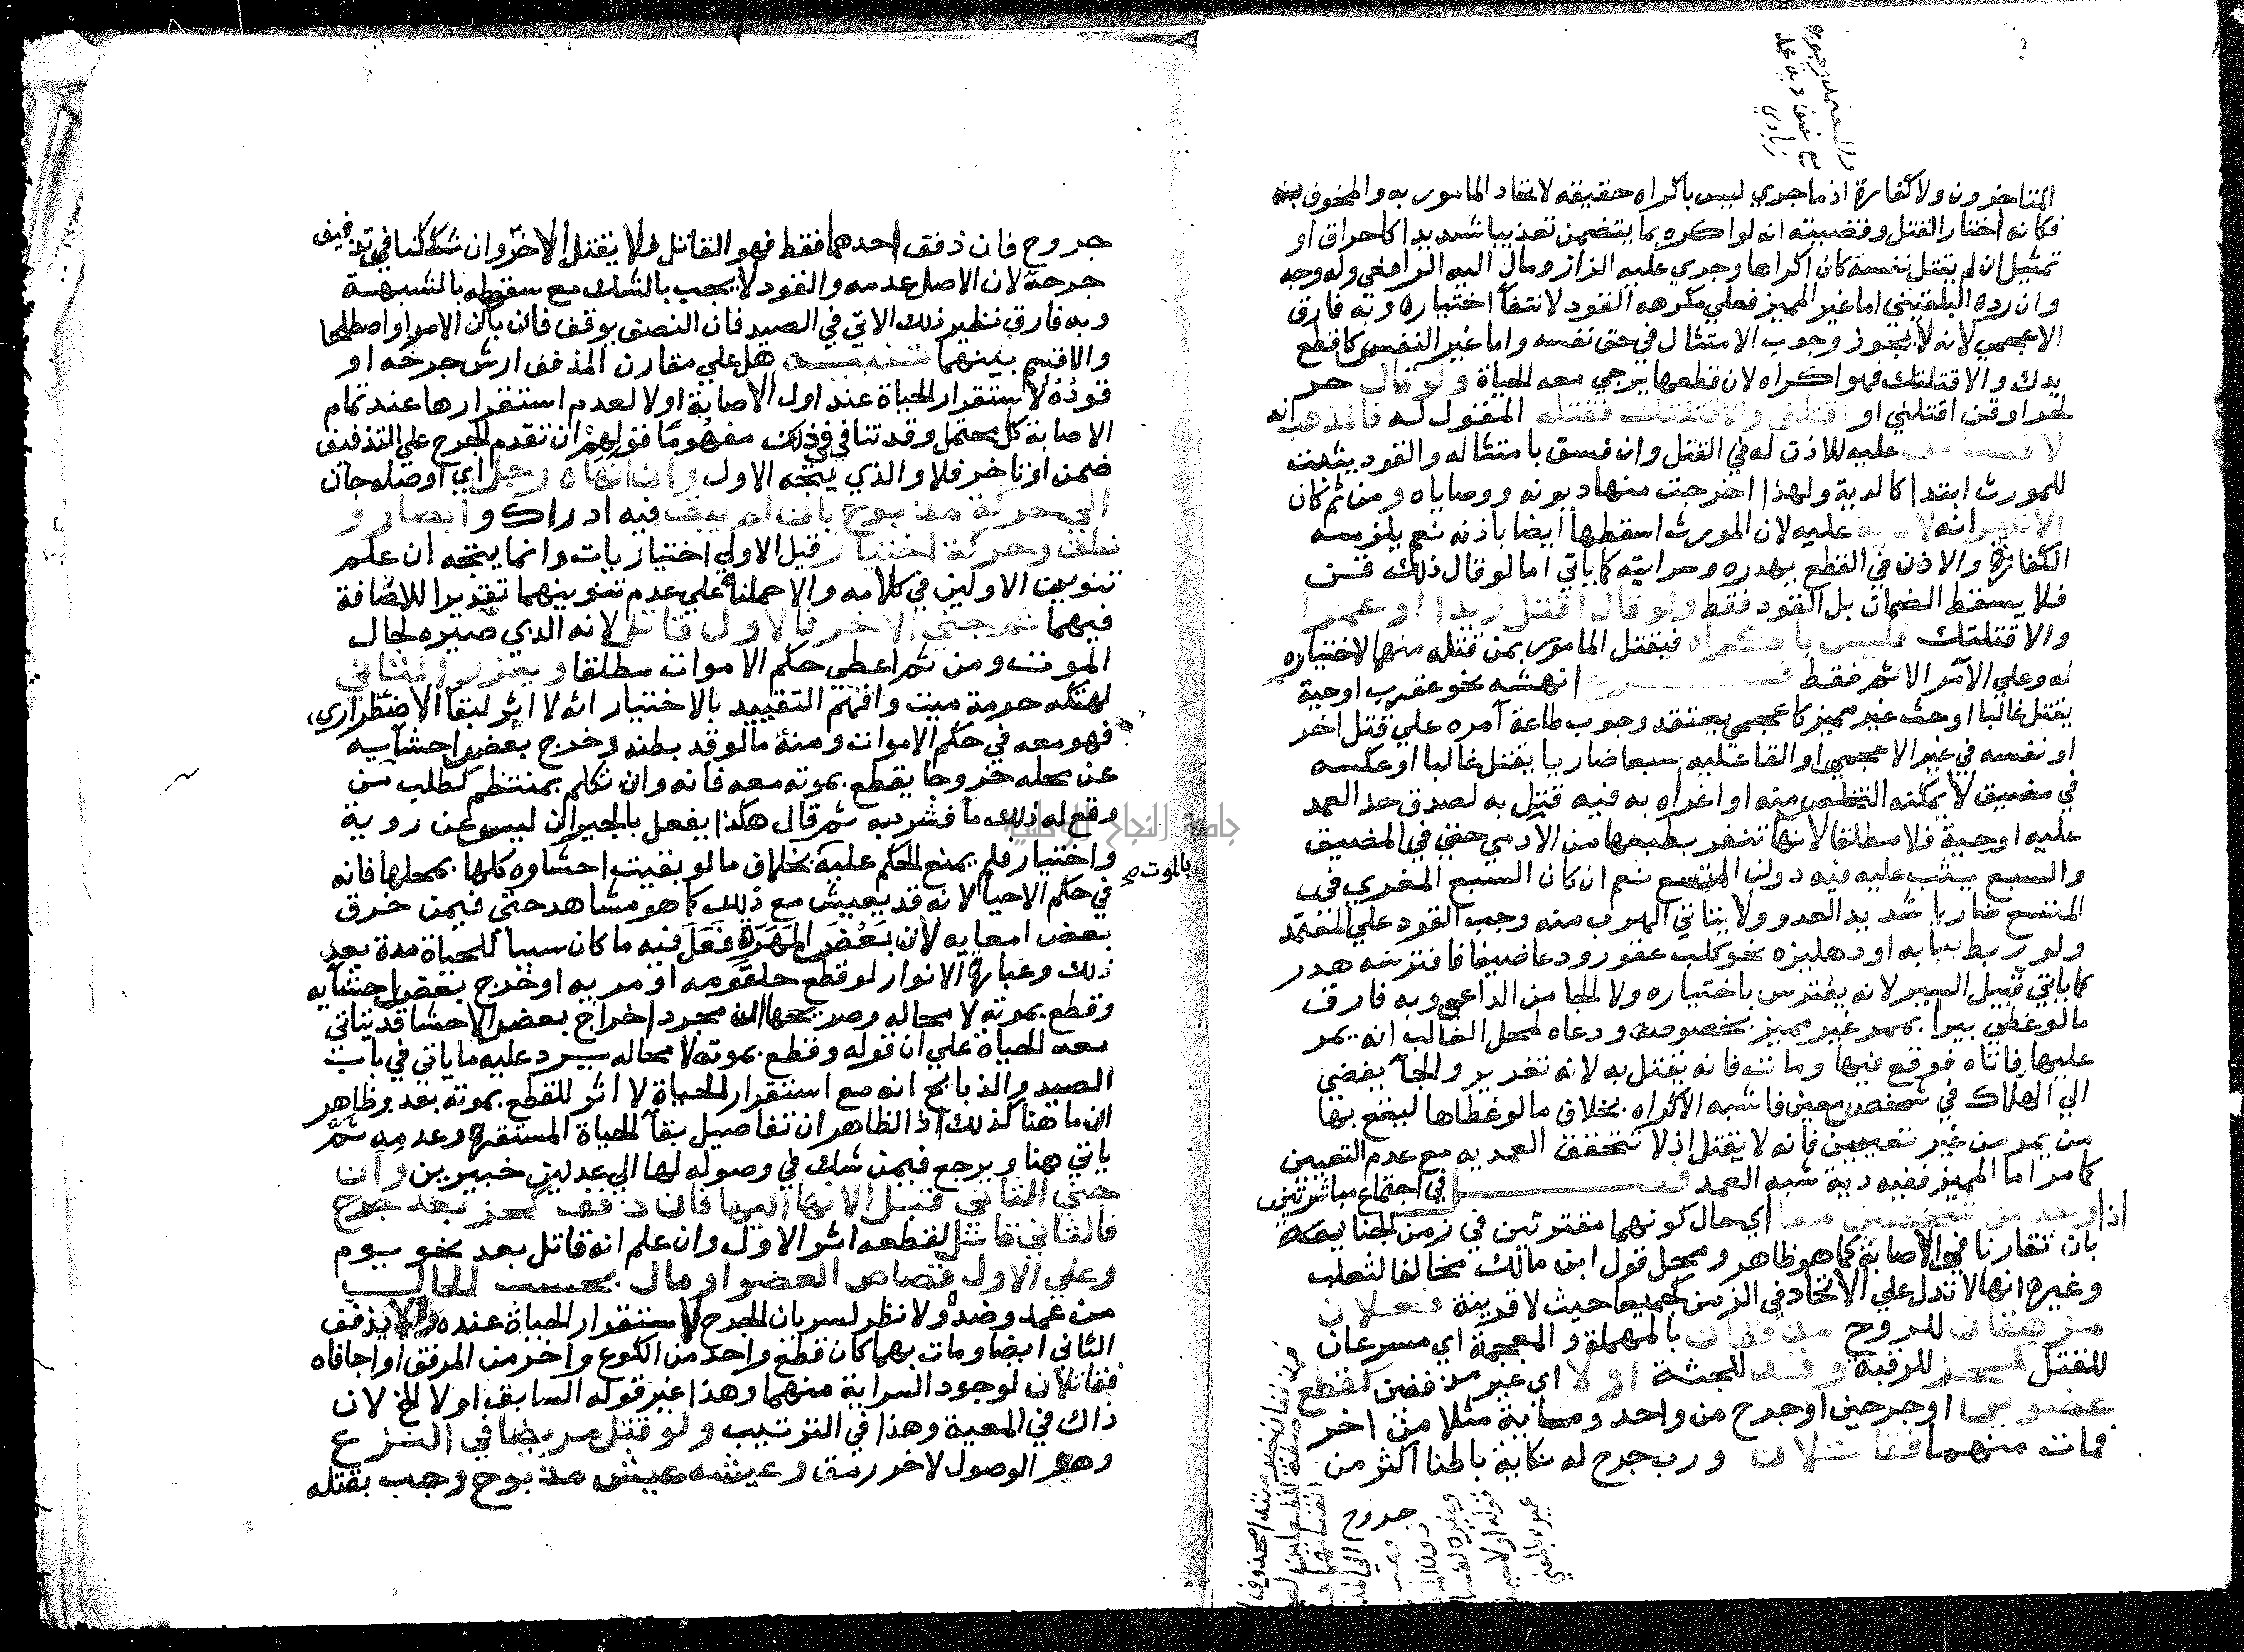 المتاخرون ولا كفارة اذ ما جري ليس باكراه حقيقه لاتحاد المامور به والمخوف به
فكانه اختار القتل وقضيته انه لو اكره بما يتضمن تعذيبا شديدا كاحراق او
تمثيل ان لم يقتل نفسه كان اكراها وجري عليه البزاز ومال اليه الرافعي وله وجه
وان رده البلقيني اما غير المميز فعلي مكرهه القود لانتفآ اختياره وبه فارق
الاعجمي لانه لا يجوز وجوب الامتثال في حق نفسه واما غير النفس كاقطع
يدك والا قتلتك فهو اكراه لان قطعها يرجي معه الحياة ولو قال حر
لحر او قن اقتلني او اقتلني والا قتلتك فقتله المقول له فالمذهب انه
لا قصاص عليه للاذن له في القتل وان فسق بامتثاله والقود يثبت
للمورث ابتدا كالدية ولهذا اخرجت منها ديونه ووصاياه ومن ثم كان
الاظهر انه لا دية عليه لان المورث اسقطها ايضا باذنه نعم يلزمه
الكفارة والاذن في القطع يهدره وسرايته كما ياتي اما لو قال ذلك قن
فلا يسقط الضمان بل القود فقط ولو قال اقتل زيدا او عمرا
والا قتلتك فليس باكراه فيقتل المامور بمن قتله منهما لاختياره
له وعلي الآمر الاثم فقط فــرع انهشه نحو عقرب او حية
يقتل غالبا او حث غير مميز كاعجمي يعتقد وجوب طاعة آمره علي قتل اخر
او نفسه في غير الاعجمي او القا عليه سبعا ضاريا يقتل غالبا او عكسه
في مضيق لا يمكنه التخلص منه او اغراه به فيه قتل به لصدق حد العمد
عليه او حية فلا مطلقا لانها تنفر بطبعها من الآدمي حتي في المضيق
والسبع يثب عليه فيه دون المتسع نعم ان كان السبع المغري في
المتسع ضاريا شديد العدو ولا يتاتي الهرب منه وجب القود علي المعتمد
ولو ربط ببابه او دهليزه نحو كلب عقور ودعا ضيفا فافترسه هدر
كما ياتي قبيل السير لانه يفترس باختياره ولا الجا من الداعي وبه فارق
ما لو غطي بيرا بممر غير مميز بخصوصه ودعاه لمحل الغالب انه يمر
عليها فاتاه فوقع فيها ومات فانه يقتل به لانه تغرير والجآ يفضي
الي الهلاك في شخص معين فاشبه الاكراه بخلاف ما لو غطاها ليقع بها
من يمر من غير تعيين فانه لا يقتل اذ لا تتحقق العمدية مع عدم التعيين
كما مر اما المميز ففيه دية شبه العمد فصــل في اجتماع مباشرتين
اذا وجد من شخصين معا اي حال كونهما مقترنين في زمن الجناية
بان تقارنا في الاصابة كما هو ظاهر ومحل قول ابن مالك مخالفا لثعلب
وغيره انها لا تدل علي الاتحاد في الزمن كجميعا حيث لا قرينة فعلان
مزهقان للروح مذففان بالمهملة والمعجمة اي مسرعان
للقتل كحز للرقبة وقد للجثة او لا اي غير مذففين كقطع
عضوين او جرحين او جرح من واحد ومائة مثلا من اخر
فمات منهما فقاتلان ورب جرح له نكاية باطنا اكثر من
جروح
جروح فان ذفف احدهما فقط فهو القاتل فلا يقتل الاخر وان شككنا في تذفيف
جرحه لان الاصل عدمه والقود لا يجب بالشك مع سقوطه بالشبهة
وبه فارق نظير ذلك الاتي في الصيد فان النصف يوقف فان بان الامر او اصطلحا
والا قسم بينهما تنبيه هل علي مقارن المذفف ارش جرحه او
قوده لاستقرار الحياة عند اول الاصابة اولا لعدم استقرارها عند تمام
الاصابة كل محتمل وقد تنافي في ذلك مفهوما قولهم ان تقدم الجرح علي التذفيف
ضمن او تاخر فلا والذي يتجه الاول وان انهاه رجل اي اوصله جان
الي حركة مذبوح بان لم يبق فيه ادراك وابصار و
نطق وحركة اختيار قيل الاولي اختياريات وانما يتجه ان علم
تنوين الاولين في كلامه والا حملناه علي عدم تنوينهما تقديرا للاضافة
فيهما ثم جني الاخر فالاول قاتل لانه الذي صيره لحال
الموت ومن ثم اعطي حكم الاموات مطلقا ويعزر الثاني
لهتكه حرمة ميت وافهم التقييد بالاختيار انه لا اثر لبقآ الاضطراري
فهو معه في حكم الاموات ومنه ما لو قد بطنه وخرج بعض احشآيه
عن محله خروجا يقطع بموته معه فانه وان تكلم بمنتظم كطلب من
وقع له ذلك ما فشربه ثم قال هكذا يفعل بالجيران ليس عن روية
واختيار فلم يمنع الحكم عليه بالموت صح بخلاف ما لو بقيت احشاوه كلها بمحلها فانه
في حكم الاحيا لانه قد يعيش مع ذلك كما هو مشاهد حتي فيمن خرق
بعض امعايه لان بعض المهرة فعل فيه ما كان سببا للحياة مدة بعد
ذلك وعبارة الانوار لو قطع حلقومه او مريه او خرج بعض احشآيه
وقطع بموته لا محاله وصريحها ان مجرد اخراج بعض الاحشا قد يتاتي
معه الحياة علي ان قوله وقطع بموته لا محاله يرد عليه ما ياتي في باب
الصيد والذبايح انه مع استقرار الحياة لا اثر للقطع بموته بعد وظاهر
ان ما هنا كذلك اذ الظاهر ان تفاصيل بقآ الحياة المستقرة وعدمه ثم
ياتي هنا ويرجع فيمن شك في وصوله لها الي عدلين خبيرين وان
جني الثاني قبل الانهآ اليها فان ذفف كحز بعد جرح
فالثاني قاتل لقطعه اثر الاول وان علم انه قاتل بعد نحو يوم
وعلي الاول قصاص العضو او مال بحسب الحال
من عمد وضده ولا نظر لسريان الجرح لاستقرار الحياة عنده والا يذفف
الثاني ايضا ومات بهما كان قطع واحد من الكوع واخر من المرفق او اجافاه
فقاتلان لوجود السراية منهما وهذا غير قوله السابق او لا الخ لان
ذاك في المعية وهذا في الترتيب ولو قتل مريضا في النزع
وهو الوصول لاخر رمق وعيشه عيش مذبوح وجب بقتله